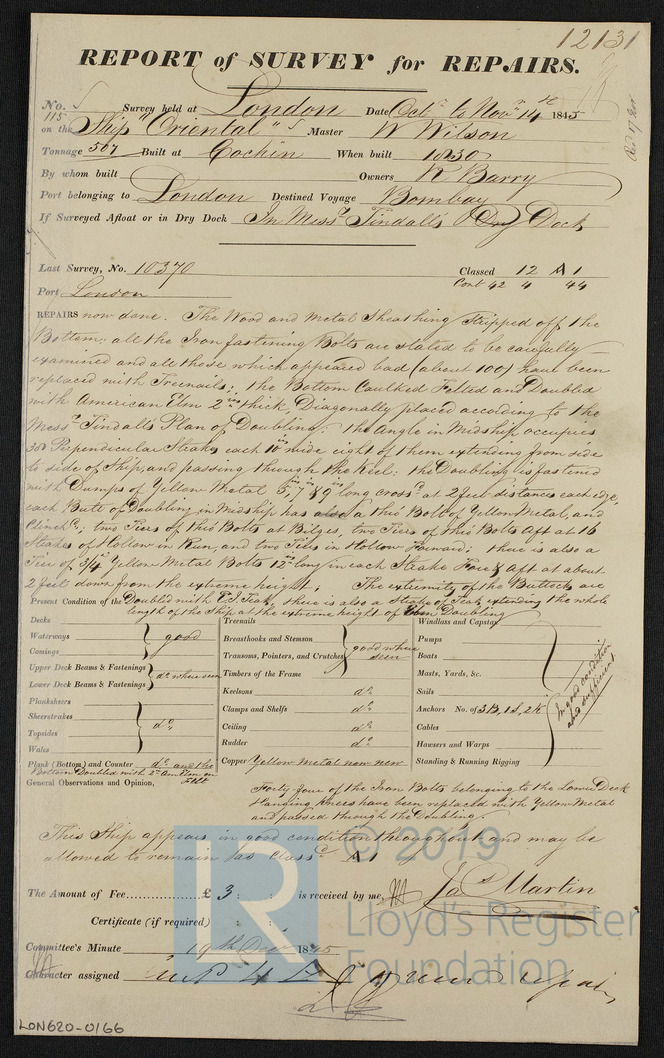 12131
REPORT of SURVEY for REPAIRS.
No. 115 Survey held at London Date Octr. to Novr. 14th 1845
on the Ship "Oriental" Master W Wilson
Tonnage 507 Built at Cochin When built 1830
By whom built Owners R Barry
Port belonging to London Destined Voyage Bombay
If Surveyed Afloat or in Dry Dock In Messrs Tindall's Dry Dock
Last Survey, No. 10370 Classed 12 A 1
Port London Cont 42 4 44
REPAIRS now done. The Wood and Metal Sheathing stripped off the
Bottom; all the Iron fastening Bolts are stated to be carefully
examined and all those which appeared bad (about 100) have been
replaced with Treenails; the Bottom Caulked Felted and Doubled
with American Elm 2 ins thick, Diagonally placed according to the
Messrs Tindall's Plan of Doubling; the Angle in Midship occupies
30 Perpendicular Strakes each 10 ins wide eight of them extending from side
to side of Ship, and passing through the Keel: the Doubling is fastened
with Dumps of Yellow Metal 5, 7 & 9 ins long crossd at 2 feet distances each edge,
each Butt of Doubling in Midship has also a thro Bolt of Yellow Metal, and
Clinchd; two Tiers of thro Bolts at Bilges, two Tiers of thro Bolts Aft at 16
Strakes of Hollow in Run, and two Tiers in Hollow Forward; there is also a
Tier of 3/4 Yellow Metal Bolts 12 ins long in each Strake Fore & Aft at about
2 feet down from the extreme height; The extremity of the Buttock are
Present Condition of the Doubled with E.I. Teak, there is also a Strake of Teak extending the whole
length of the Ship at the extreme height of Elm Doubling
Decks
Waterways
Comings
good
Upper Deck Beams & Fastenings
Lower Deck Beams & Fastenings
do where seen
Plansheers
Sheerstrakes
Topsides
Wales
do
Plank (Bottom) and Counter do and the
Bottom Doubled with 2 in Am Elm on
Felt
Treenails
Breasthooks and Stemson
Transoms, Pointers, and Crutches
Timbers of the Frame
good where
seen
Keelsons do
Clamps and Shelfs do
Ceiling do
Rudder do
Copper Yellow Metal now new
Windlass and Capstan
Pumps
Boats
Masts, Yards, &c.
Sails
Anchors No. of 3B, 1S, 2K
Cables
Hawsers and Warps
Standing & Running Rigging
In good condition
and sufficient
General Observations and Opinion,
Forty four of the Iron Bolts belonging to the Lower Deck
Hanging Knees have been replaced with Yellow Metal
and passed through the Doubling.
This Ship appears in good condition throughout and may be
allowed to remain as Classd A 1
The Amount of Fee £ 3 : : is received by me, Jas Martin
Certificate (if required) : :
Committee's Minute 19th Decr 1845
Character assigned
LON620-0166
© 2019
Lloyd's Register
Foundation
LR